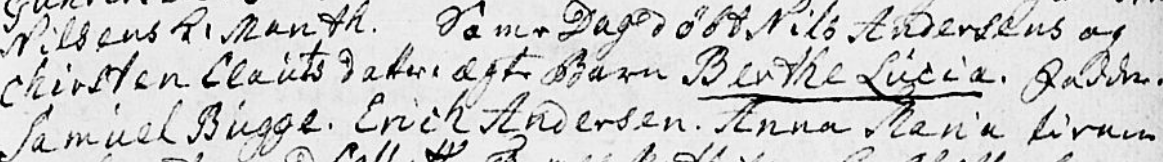 Nilsens k. Manth. Same Dag döbt Nils Andersens og
Chirsten Clauts datters ægte Barn Berthe Lucia. Fadder.
Samuel Bugge. Erich Andersen. Anna Maria